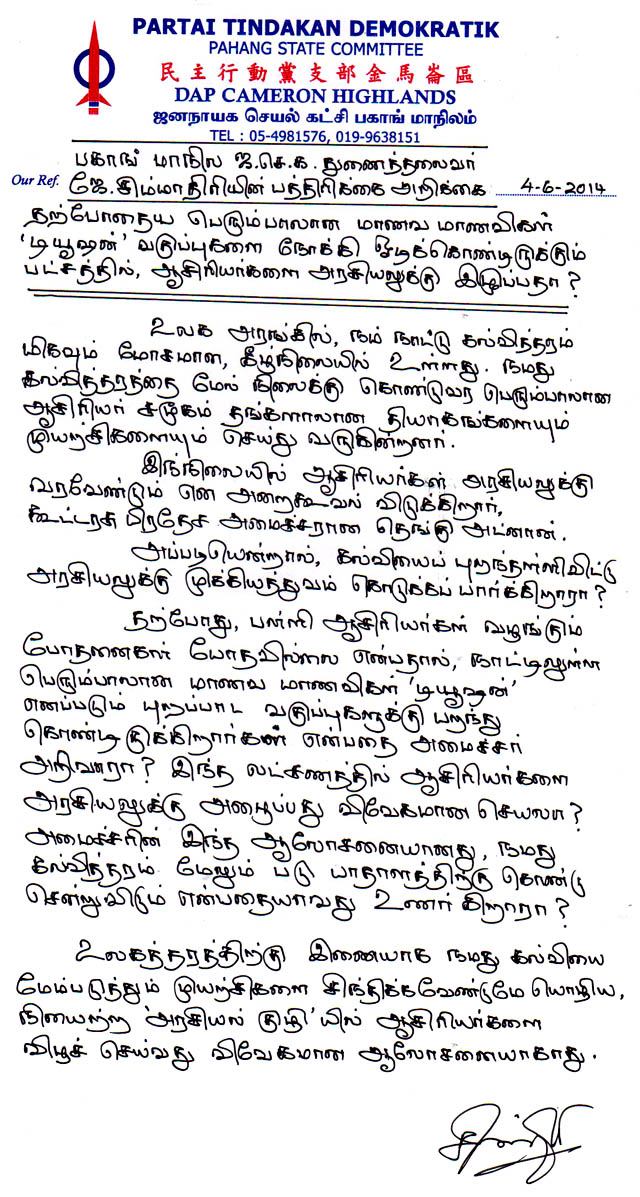 PARTAI TINDAKAN DEMOKRATIK
PAHANG STATE COMMITTEE
民主行動黨支部金馬崙區
DAP CAMERON HIGHLANDS
ஜனநாயக செயல் கட்சி பகாங் மாநிலம்
TEL : 05-4981576, 019-9638151
பகாங் மாநில ஜ.செ.க. துணைத்தலைவர்
Our Ref. ஜே.சிம்மாதிரியின் பத்திரிக்கை அறிக்கை 4-6-2014
தற்போதைய பெரும்பாலான மாணவ மாணவிகள்
'டியூஷன்' வகுப்புகளை நோக்கி ஓடிக்கொண்டிருக்கும்
பட்சத்தில், ஆசிரியர்களை அரசியலுக்கு இழுப்பதா?
உலக அரங்கில், நம் நாட்டு கல்வித்தரம்
மிகவும் மோசமான, கீழ்நிலையில் உள்ளது. நமது
கல்வித்தரத்தை மேல் நிலைக்கு கொண்டுவர பெரும்பாலான
ஆசிரியர் சமூகம் தங்களாலான தியாகங்களையும்
முயற்சிகளையும் செய்து வருகின்றனர்.
இந்நிலையில் ஆசிரியர்கள் அரசியலுக்கு
வரவேண்டும் என அறைகூவல் விடுக்கிறார்,
கூட்டரசு பிரதேச அமைச்சரான தெங்கு அட்னான்.
அப்படியென்றால், கல்வியைப் புறந்தள்ளிவிட்டு
அரசியலுக்கு முக்கியத்துவம் கொடுக்கப் பார்க்கிறாரா?
தற்போது, பள்ளி ஆசிரியர்கள் வழங்கும்
போதனைகள் போதவில்லை என்பதால், நாட்டிலுள்ள
பெரும்பாலான மாணவ மாணவிகள் 'டியூஷன்'
எனப்படும் புறப்பாட வகுப்புகளுக்கு பறந்து
கொண்டிருக்கிறார்கள் என்பதை அமைச்சர்
அறிவாரா? இந்த லட்சணத்தில் ஆசிரியர்களை
அரசியலுக்கு அழைப்பது விவேகமான செயலா?
அமைச்சரின் இந்த ஆலோசனையானது, நமது
கல்வித்தரம் மேலும் படு பாதாளத்திற்கு கொண்டு
சென்றுவிடும் என்பதையாவது உணர்கிறாரா?
உலகத்தரத்திற்கு இணையாக நமது கல்வியை
மேம்படுத்தும் முயற்சிகளை சிந்திக்கவேண்டுமே யொழிய,
நியைற்ற 'அரசியல் குழி'யில் ஆசிரியர்களை
விழச் செய்வது விவேகமான ஆலோசனையாகாது.